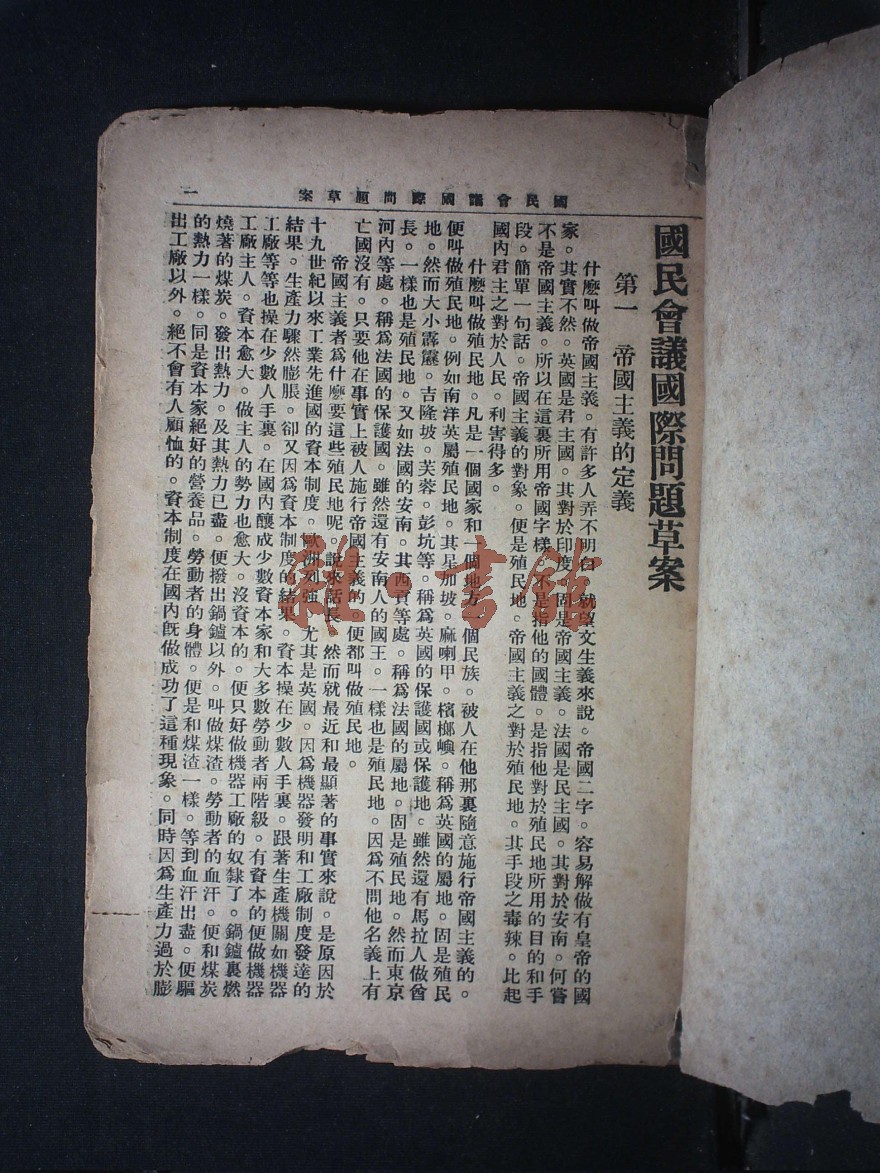 國民會議國際問題草案
一
國民會議國際問題草案
第一　帝國主義的定義
什麽叫做帝國主義。有許多人弄不明白。就望文生義來說。帝國二字。容易解做有皇帝的國
家。其實不然。英國是君主國。其對於印度。固是帝國主義。法國是民主國。其對於安南。何嘗
不是帝國主義。所以在這裏所用帝國字樣。不是指他的國體。是指他對於殖民地所用的目的和手
段。簡單一句話。帝國主義的對象。便是殖民地。帝國主義之對於殖民地。其手段之毒辣。比起
國內君主之對於人民。利害得多。
什麽叫做殖民地。凡是一個國家和一個地方一個民族。被人在他那裏隨意施行帝國主義的。
便叫做殖民地。例如南洋英屬殖民地。其星加坡。麻喇甲。檳榔嶼。稱爲英國的屬地。固是殖民
地。然而大小霹靂。吉隆坡。芙蓉。彭坑等。稱爲英國的保護國或保護地。雖然還有馬拉人做酋
長。一樣也是殖民地。又如法國的安南。其西貢等處。稱爲法國的屬地。固是殖民地。然而東京
河內等處。稱爲法國的保護國。雖然還有安南人的國王。一樣也是殖民地。因爲不問他名義上有
亡國沒有。只要他在事實上被人施行帝國主義的。便都叫做殖民地。
帝國主義者爲什麽要這些殖民地呢。說來話長。然而就最近和最顯著的事實來說。是原因於
十九世紀以來工業先進國的資本制度。歐洲列強。尤其是英國。因爲機器發明和工廠制度發達的
結果。生產力驟然膨脹。卻又因爲資本制度的緒果。資本操在少數人手裏。跟著生產機關如機器
工廠等等也操在少數人手裏。在國內釀成少數資本家和大多數勞動者兩階級。有資本的便做機器
工廠主人。資本愈大。做主人的勢力也愈大。沒資本的。便只好做機器工廠的奴隸了。鍋鑪裏燃
燒著的煤炭。發出熱力。及其熱力已盡。便撥出鍋鑪以外。叫做煤渣。勞動者的血汗。便和煤炭
的熱力一樣。同是資本家絕好的營養品。勞動者的身體。便是和煤渣一樣。等到血汗出盡。便驅
出工廠以外。絕不會有人顧恤的。資本制度在國內旣做成功了這種現象。同時因爲生產力過於膨
雜·書館